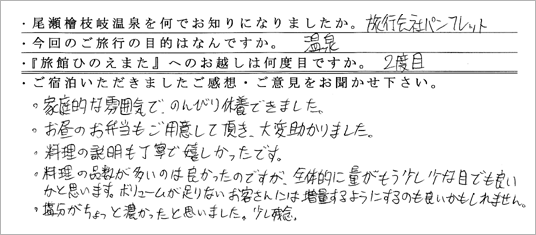 ・尾瀬檜枝岐温泉を何でお知りになりましたか。 旅行会社パンフレット
・今回のご旅行の目的はなんですか。 温泉
・『旅館ひのえまた』へのお越しは何度目ですか。 2度目
・ご宿泊いただきましたご感想・ご意見をお聞かせ下さい。
。家庭的な雰囲気で、のんびり休養できました。
。お昼のお弁当もご用意して頂き、大変助かりました。
。料理の説明も丁寧で嬉しかったです。
。料理の品数が多いのは良かったのですが、全体的に量がもう少し少な目でも良い
かと思います。ボリュームが足りないお客さんには増量するようにするのも良いかもしれません。
。塩分がちょっと濃かったと思いました。少し残念。